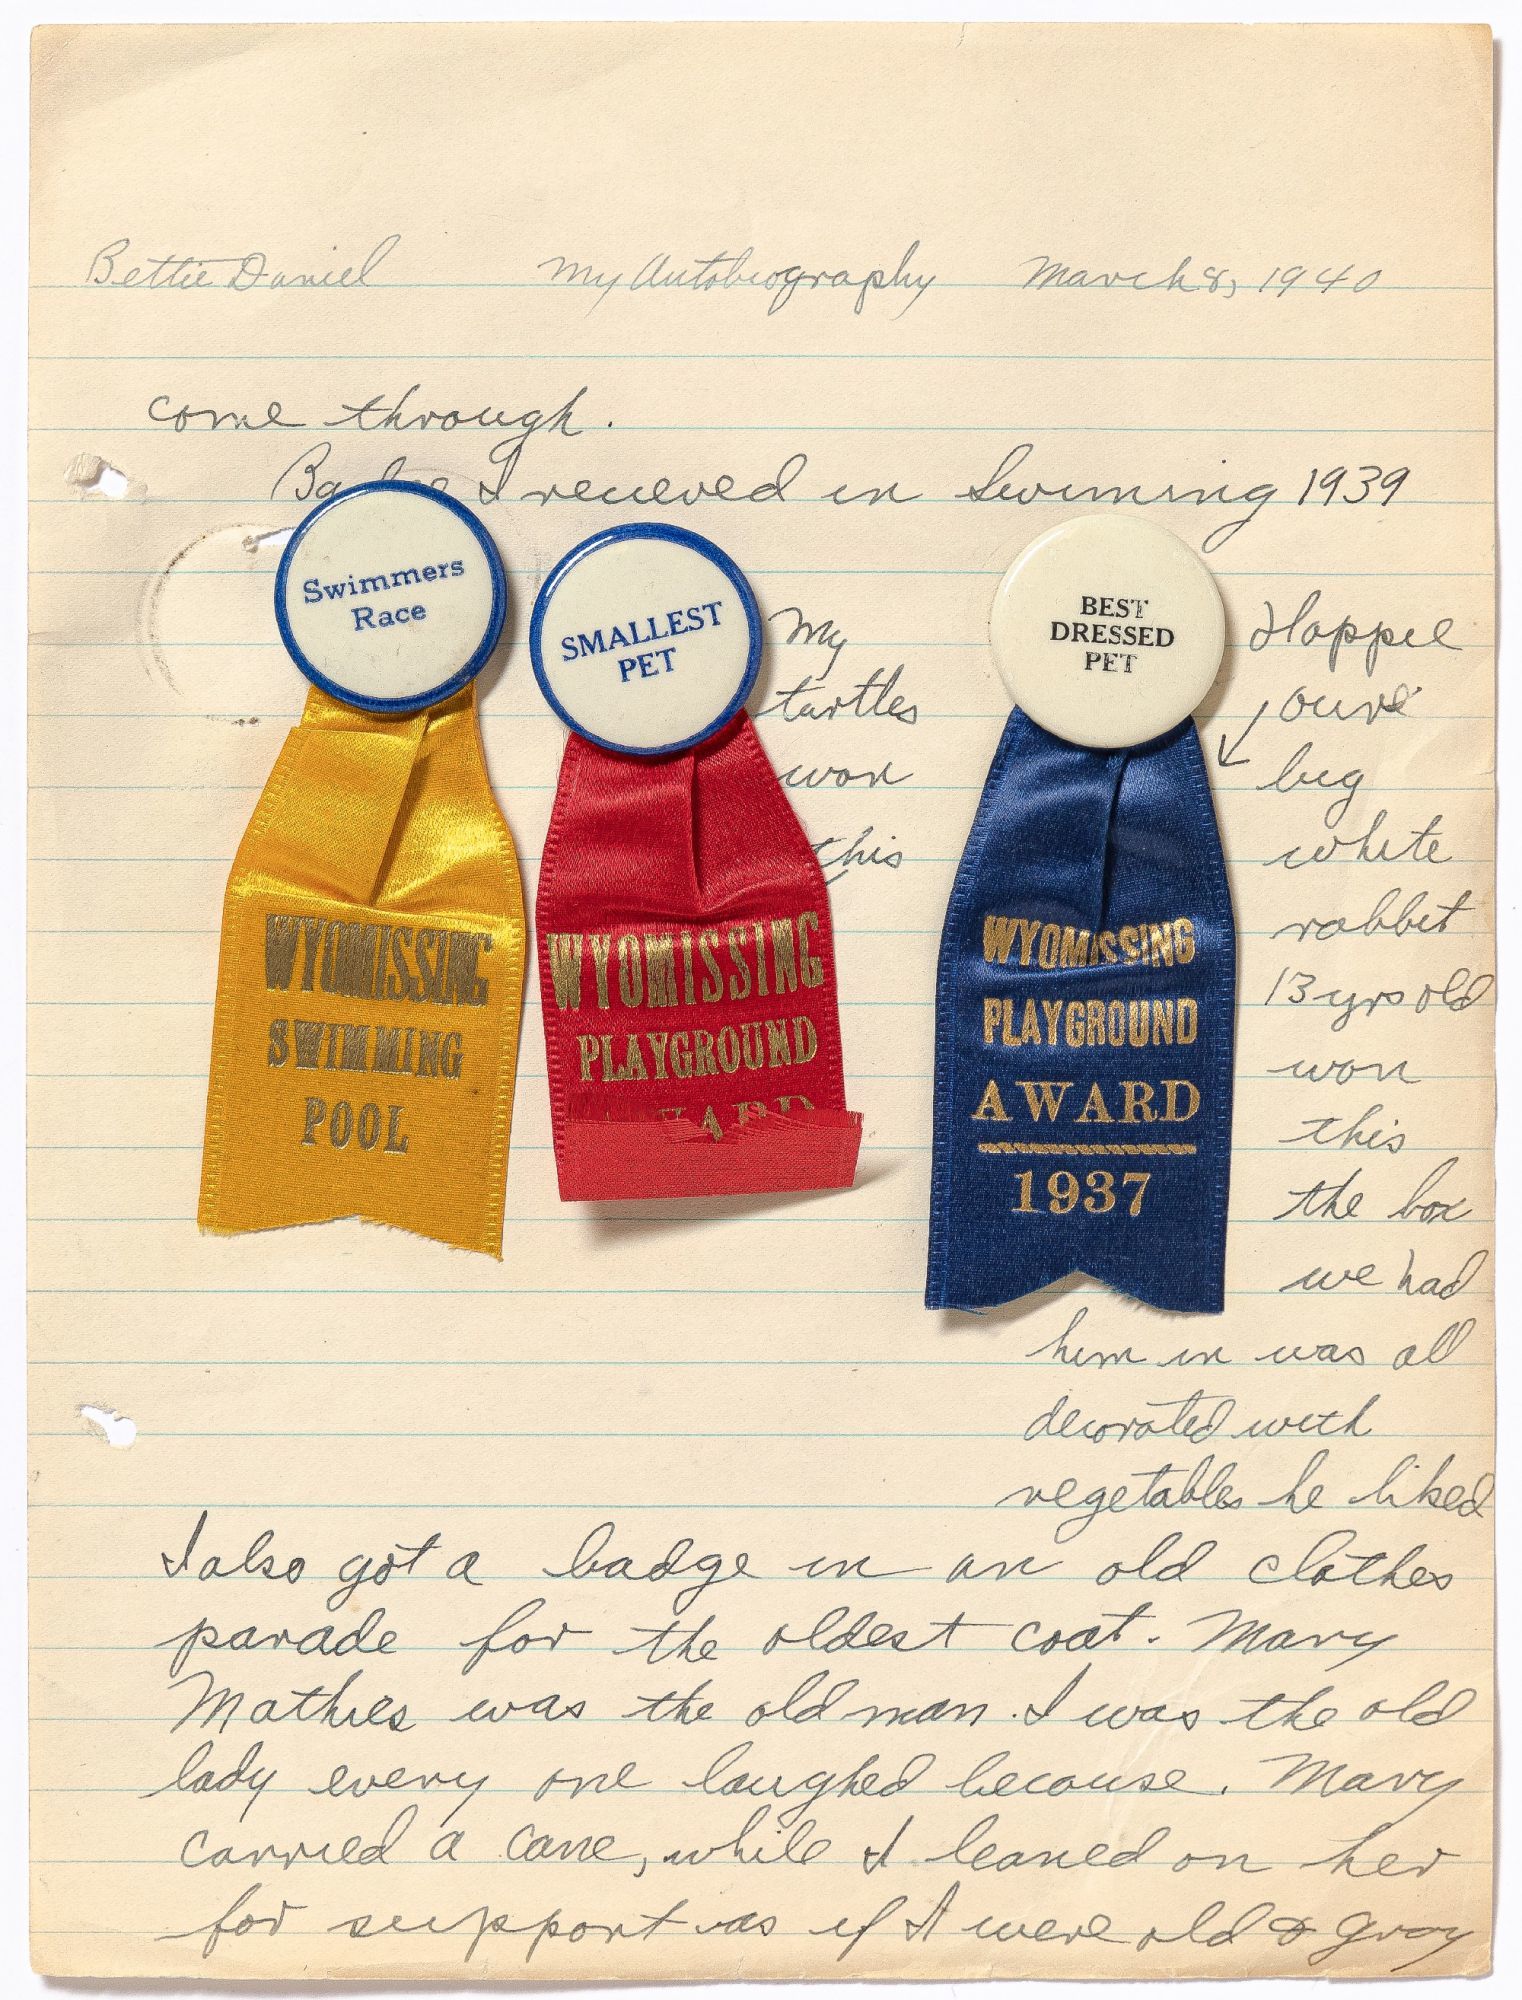 Bettie Daniel My Autobiography March 8, 1940
come through.
I recieved in Swimming 1939
Swimmers
Race
WYOMISSING
SWIMMING
POOL
SMALLEST
PET
WYOMISSING
PLAYGROUND
My
turtles
won
this
BEST
DRESSED
PET
WYOMISSING
PLAYGROUND
AWARD
1937
our
big
white
rabbit
13 yrs old
won
this
the box
we had
him in was all
decorated with
vegetables he liked
I also got a badge in an old clothes
parade for the oldest coat. Mary
Mathies was the old man. I was the old
lady every one laughed because. Mary
carried a cane, while I leaned on her
for support as if I were old & gray